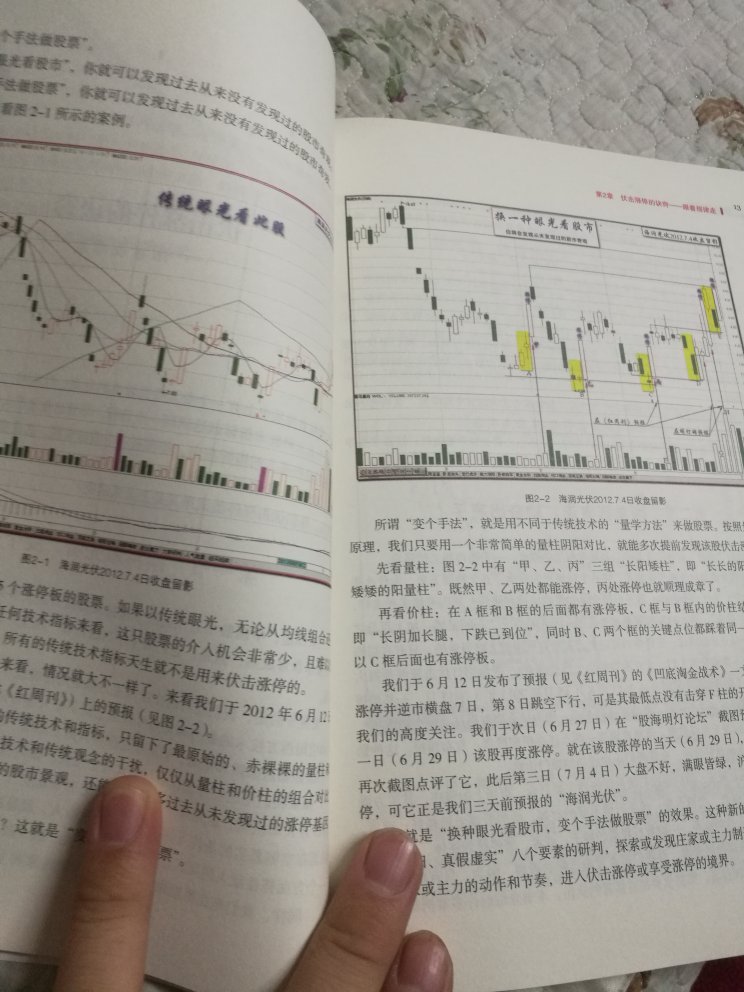 个手法做股票”。
眼光看股市”，你就可以发现过去从来没有发现过的股市
手法做股票”，你就可以发现过去从来没有发现过的股
看图2-1所示的案例。
传统眼光看此股
图2-1 海润光伏2012.7.4日收盘留影
个涨停板的股票。如果以传统眼光，无论从均线组合还
任何技术指标来看，这只股票的介入机会非常少，且难以
所有的传统技术指标天生就不是用来伏击涨停的。
来看，情况就大不一样了。来看我们于2012年6月12
《红周刊》）上的预报（见图2-2）。
的传统技术和指标，只留下了最原始的、赤裸裸的量柱和
技术和传统观念的干扰，仅仅从量柱和价柱的组合对比
的股市景观，还能
多过去从未发现过的涨停基因
？这就是“
票”。
第2章 伏击涨停的诀窍——跟着规律走 13
换一种眼光看股市
你将会发现从未发现过的股市景观
海润光伏2012.7.4收盘留影
在《红周刊》预报
图2-2 海润光伏2012.7.4日收盘留影
所谓“变个手法”，就是用不同于传统技术的“量学方法”来做股票。按照
原理，我们只要用一个非常简单的量柱阴阳对比，就能多次提前发现该股伏击
先看量柱：图2-2中有“甲、乙、丙”三组“长阴矮柱”，即“长长的阴
矮矮的阳量柱”。既然甲、乙两处都能涨停，丙处涨停也就顺理成章了。
再看价柱：在A框和B框的后面都有涨停板，C框与B框内的价柱结
即“长阴加长腿，下跌已到位”，同时B、C两个框的关键点位都踩着同一
以C框后面也有涨停板。
我们于6月12日发布了预报（见《红周刊》的《凹底淘金战术》一文
涨停并逆市横盘7日，第8日跳空下行，可是其最低点没有击穿F柱的开
我们的高度关注。我们于次日（6月27日）在“股海明灯论坛”截图预
一日（6月29日）该股再度涨停。就在该股涨停的当天（6月29日），
再次截图点评了它，此后第三日（7月4日）大盘不好，满眼皆绿，沪
停，可它正是我们三天前预报的“海润光伏”。
就是“换种眼光看股市，变个手法做股票”的效果。这种新的
阳、真假虚实”八个要素的研判，探索或发现庄家或主力制
或主力的动作和节奏，进入伏击涨停或享受涨停的境界。